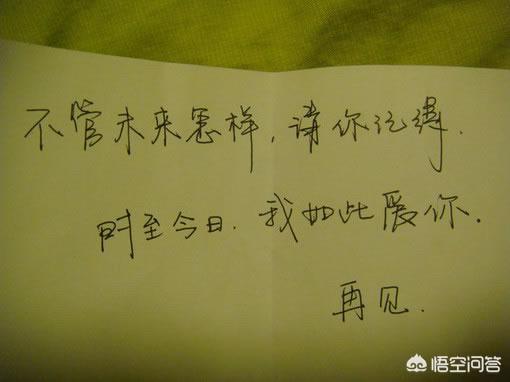 不管未来怎样，请你记得.
时至今日.我如此爱你.
再见.
悟空问答